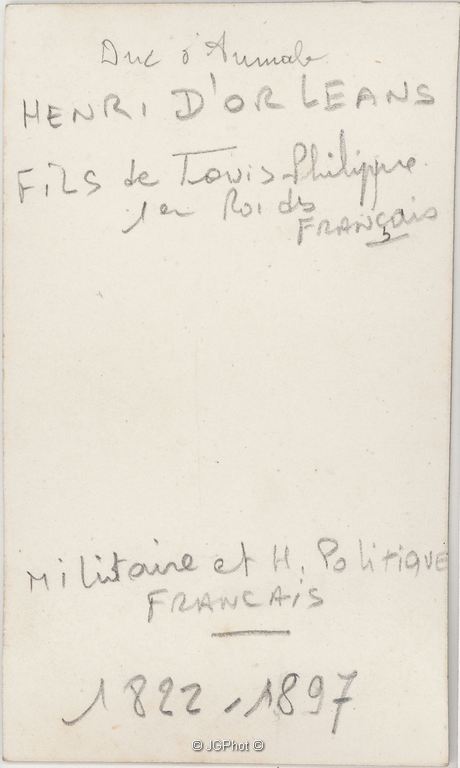 Duc d'Aumale
HENRI D'ORLEANS
Fils de Louis-Philippe
1er Roi des
FRANçais
Militaire et H. Politique
FRANCAIS
1822-1897
© JGPhot ©